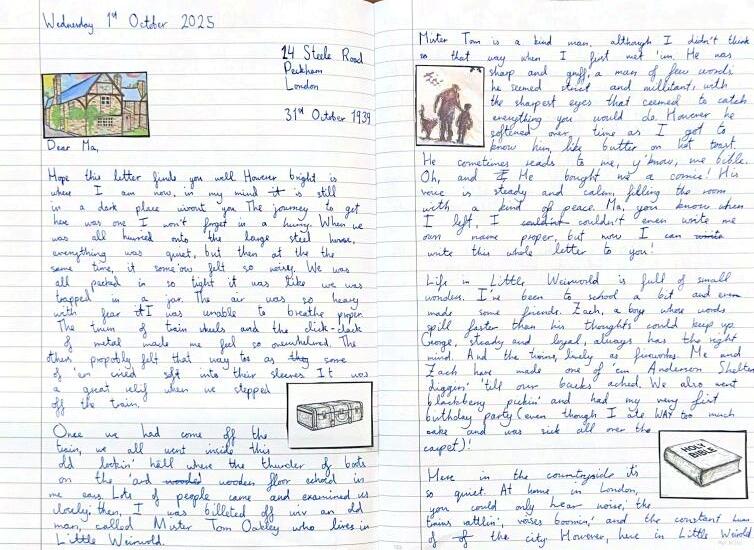 Wednesday 1st October 2025
24 Steele Road
Peckham
London
31st October 1939
Dear Ma,
Hope this letter finds you well However bright is
where I am now, in my mind it is still
in a dark place wivout you The journey to get
here was one I won't forget in a hurry. When we
was all hurried onto the large steel horse,
everything was quiet, but then at the the
same time, it some'ow felt so noisy. We was
all packed in so tight it was like we was
trapped in a jar. The air was so heavy
with fear I was unable to breathe proper.
The thrum of train wheels and the click-clack
of metal made me feel so overwhelmed. The
others propobly felt that way too as they some
of 'em cried soft into their sleeves It was
a great relif when we stepped
off the train.
Once we had come off the
train, we all went inside this
old lookin' hall where the thunder of boots
on the 'ard wooded wooden floor echoed in
me ears. Lots of people came and examined us
slowly; then, I was billeted off wiv an old
man, called Mister Tom Oakley who lives in
Little Weirwold.
Mister Tom is a kind man, although I didn't think
so that way when I first met 'im. He was
sharp and gruff, a man of few words
he seemed strict and militant, with
the sharpest eyes that seemed to catch
everything you would do. However he
softened over time as I got to
know him, like butter on hot toast.
He sometimes reads to me, y'know, me bible.
Oh, and He bought me a comic! His
voice is steady and calm, filling the room
with a kind of peace. Ma, you know when
I left, I couldn't couldn't even write me
own name proper, but now I can write
write this whole letter to you!
Life in Little Weirwold is full of small
wonders. I've been to school a bit and even
made some friends. Zach, a boy whose words
spill faster than his thoughts could keep up
George, steady and loyal, always has the right
mind. And the twins, lively as fireworks. Me and
Zach have made one of 'em Anderson Shelter
diggin' 'till our backs ached. We also went
blackberry pickin' and had my very first
birthday party (even though I ate WAY too much
cake and was sick all over the
carpet)!
HOLY
BIBLE
Here in the countryside it's
so quiet. At home, in London,
you could only hear noise, the
trains rattlin', voices boomin' and the constant hum
of of the city. However, here in Little Weirwold